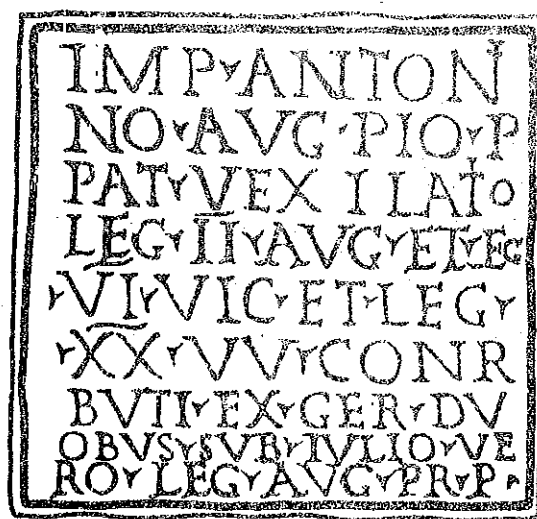 IMP·ANTONI
NO·AVG·PIO·P
PAT·VEXILATIO
LEG·II·AVG·ET·LEG
·VI·VIC·ET·LEG·
·XX·VV·CONR
BVTI·EX·GER·DV
OBVS·SVB·IVLIO·VE
RO·LEG·AVG·PR·P·